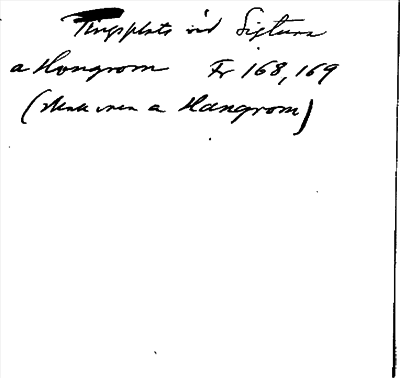 Tingsplats vid Sigtuna
a Hongrom Fr 168, 169
(Skall vara a Hangrom)